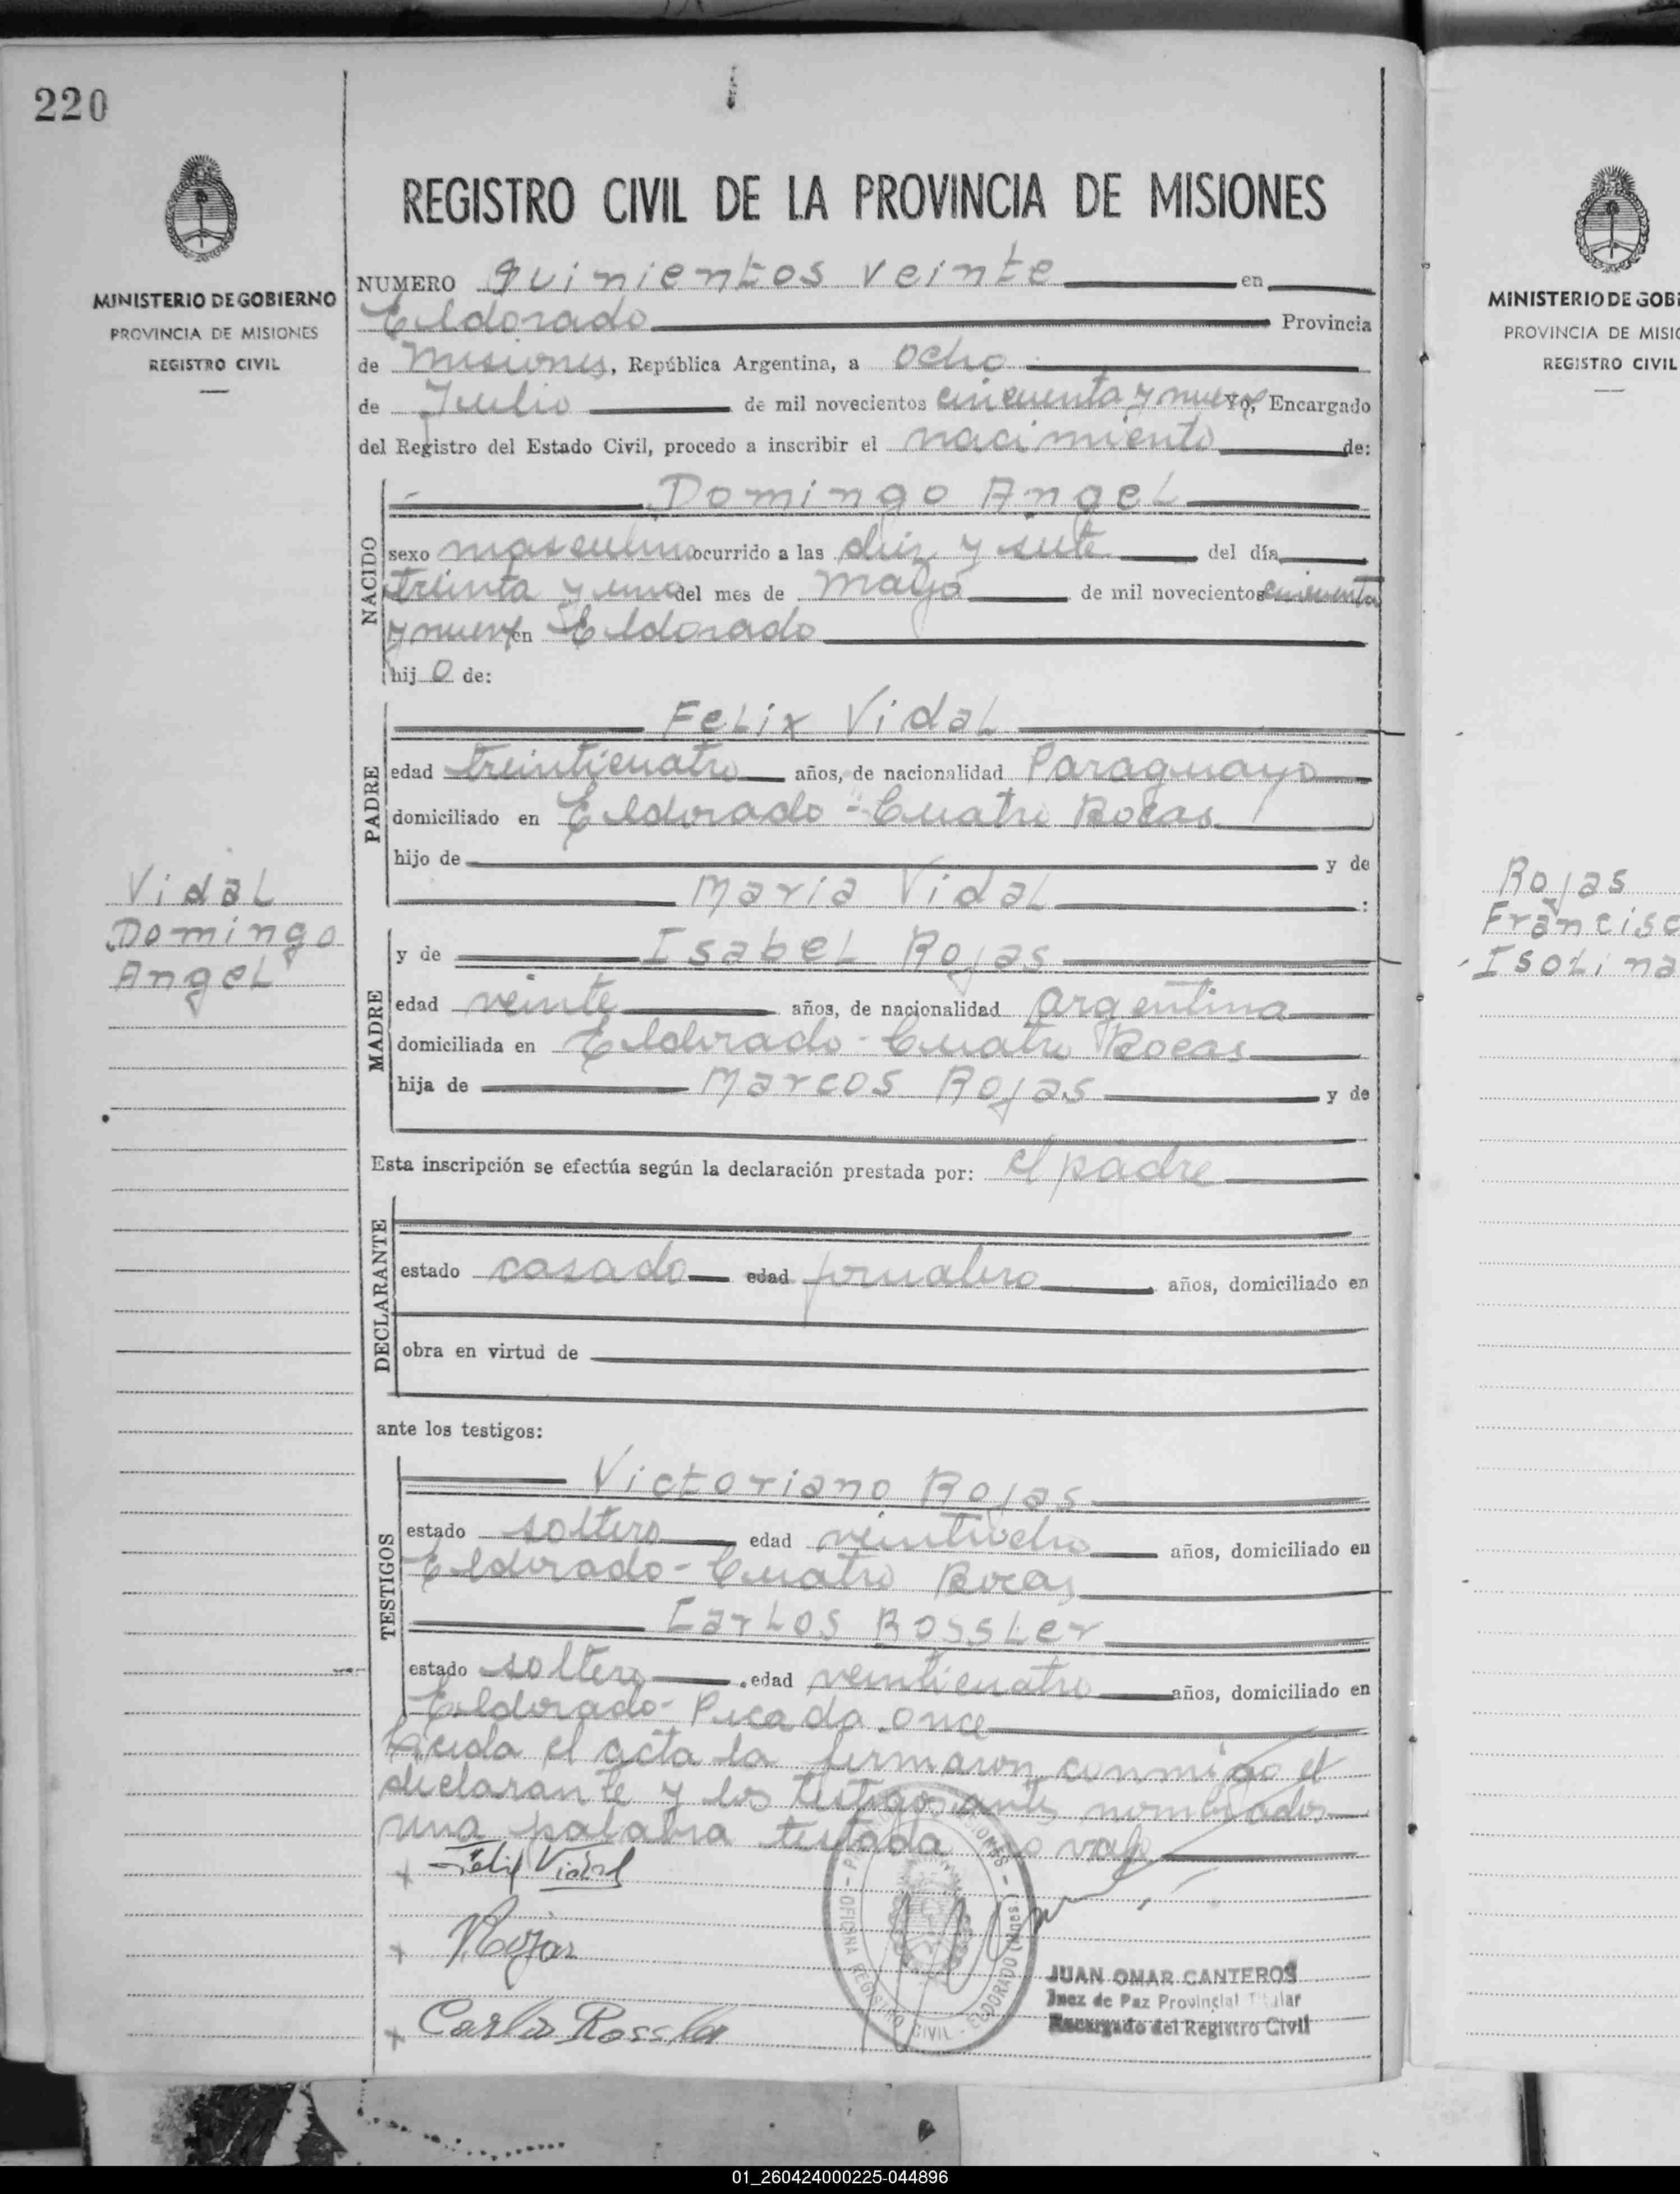 220
MINISTERIO DE GOBIERNO
PROVINCIA DE MISIONES
REGISTRO CIVIL
REGISTRO CIVIL DE LA PROVINCIA DE MISIONES
NUMERO quinientos veinte en
Eldorado Provincia
de Misiones, República Argentina, a ocho
de Julio de mil novecientos cincuenta y nueve Yo, Encargado
del Registro del Estado Civil, procedo a inscribir el nacimiento de:
NACIDO
Domingo Angel
sexo masculino ocurrido a las diez y siete del día
treinta y uno del mes de mayo de mil novecientos cincuenta
y nueve en Eldorado
hij o de:
PADRE
Felix Vidal
edad treinticuatro años, de nacionalidad Paraguayo
domiciliado en Eldorado - Cuatro Bocas
hijo de y de
Maria Vidal :
Vidal
Domingo
Angel
MADRE
y de Isabel Rojas
edad veinte años, de nacionalidad argentina
domiciliada en Eldorado - Cuatro Bocas
hija de Marcos Rojas y de
Esta inscripción se efectúa según la declaración prestada por: el padre
DECLARANTE
estado casado edad jornalero años, domiciliado en
obra en virtud de
ante los testigos:
TESTIGOS
Victoriano Rojas
estado soltero edad veintiocho años, domiciliado en
Eldorado - Cuatro Bocas
Carlos Rossler
estado soltero edad veinticuatro años, domiciliado en
Eldorado - Picada once
Leida el acta la firmaron conmigo el
declarante y los testigos antes nombrados
una palabra testada no vale
x Felix Vidal
x Rojas
x Carlos Rossler
OFICINA REGISTRO CIVIL - ELDORADO (Mnes.)
JUAN OMAR CANTEROS
Juez de Paz Provincial Titular
Encargado del Registro Civil
MINISTERIO DE GOBI
PROVINCIA DE MISIO
REGISTRO CIVIL
Rojas
Francisc
Isolina
01_260424000225-044896